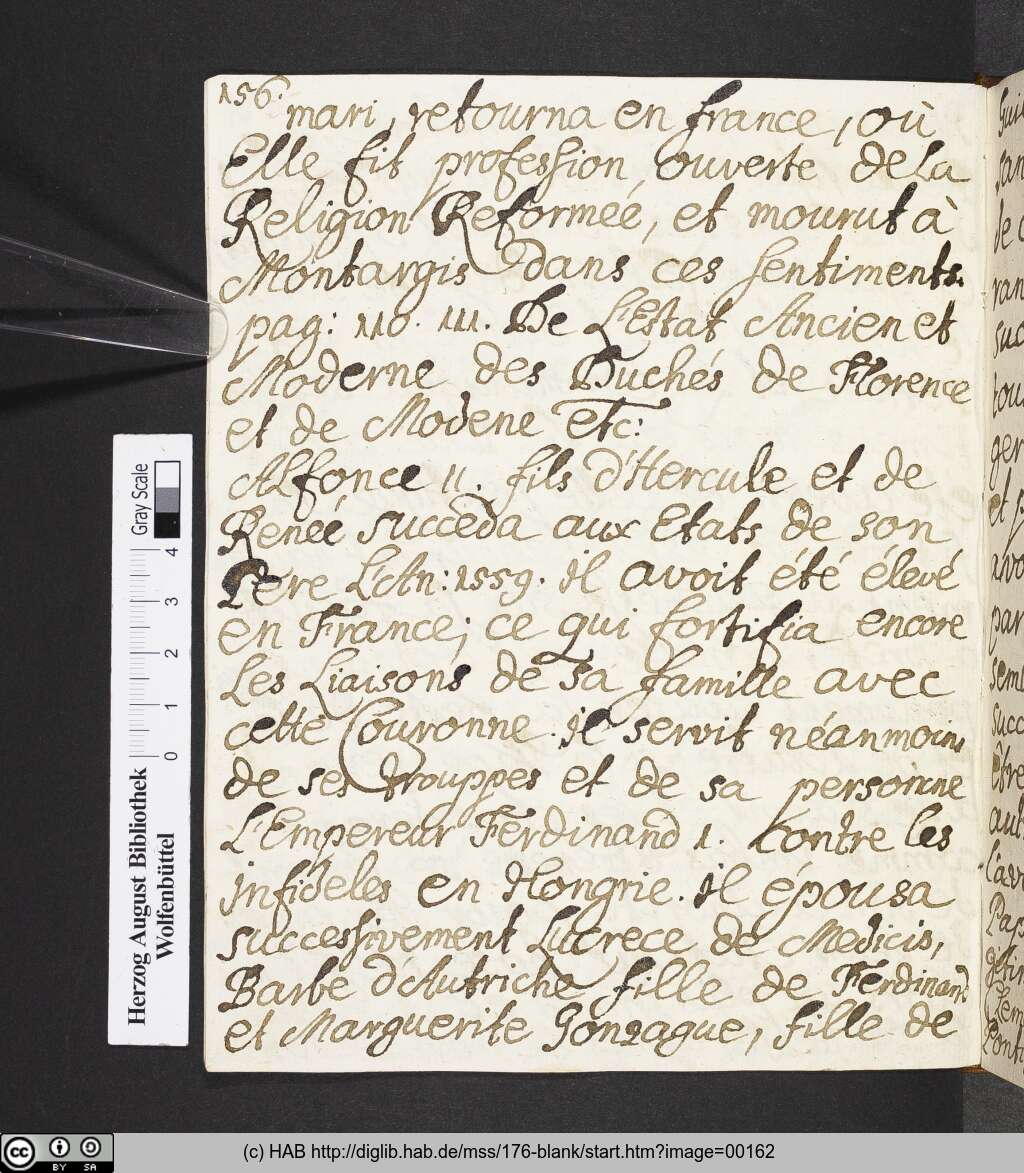 156.
mari, retourna en france, où
Elle fit profession ouverte dela
Religion Reformée, et mourut à
Montargis dans ces sentiments.
pag: 110. 111. De L'Estat Ancien et
Moderne des Duchés de Florence
et de Modene etc:
Alfonce II. fils d'Hercule et de
Reneé succeda aux Etats de son
Pere L'An: 1559. il avoit été élevé
en France; ce qui fortifia encore
Les Liaisons de sa famille avec
cette Couronne. il servit néanmoins
de ses trouppes et de sa personne
L'Empereur Ferdinand I. contre les
infideles en Hongrie. il épousa
successivement Lucrece de Medicis,
Barbe d'Autriche fille de Ferdinand
et Marguerite Gonzague, fille de
Herzog August Bibliothek
Wolfenbüttel
0 1 2 3 4
Gray Scale
cc BY SA
(c) HAB http://diglib.hab.de/mss/176-blank/start.htm?image=00162